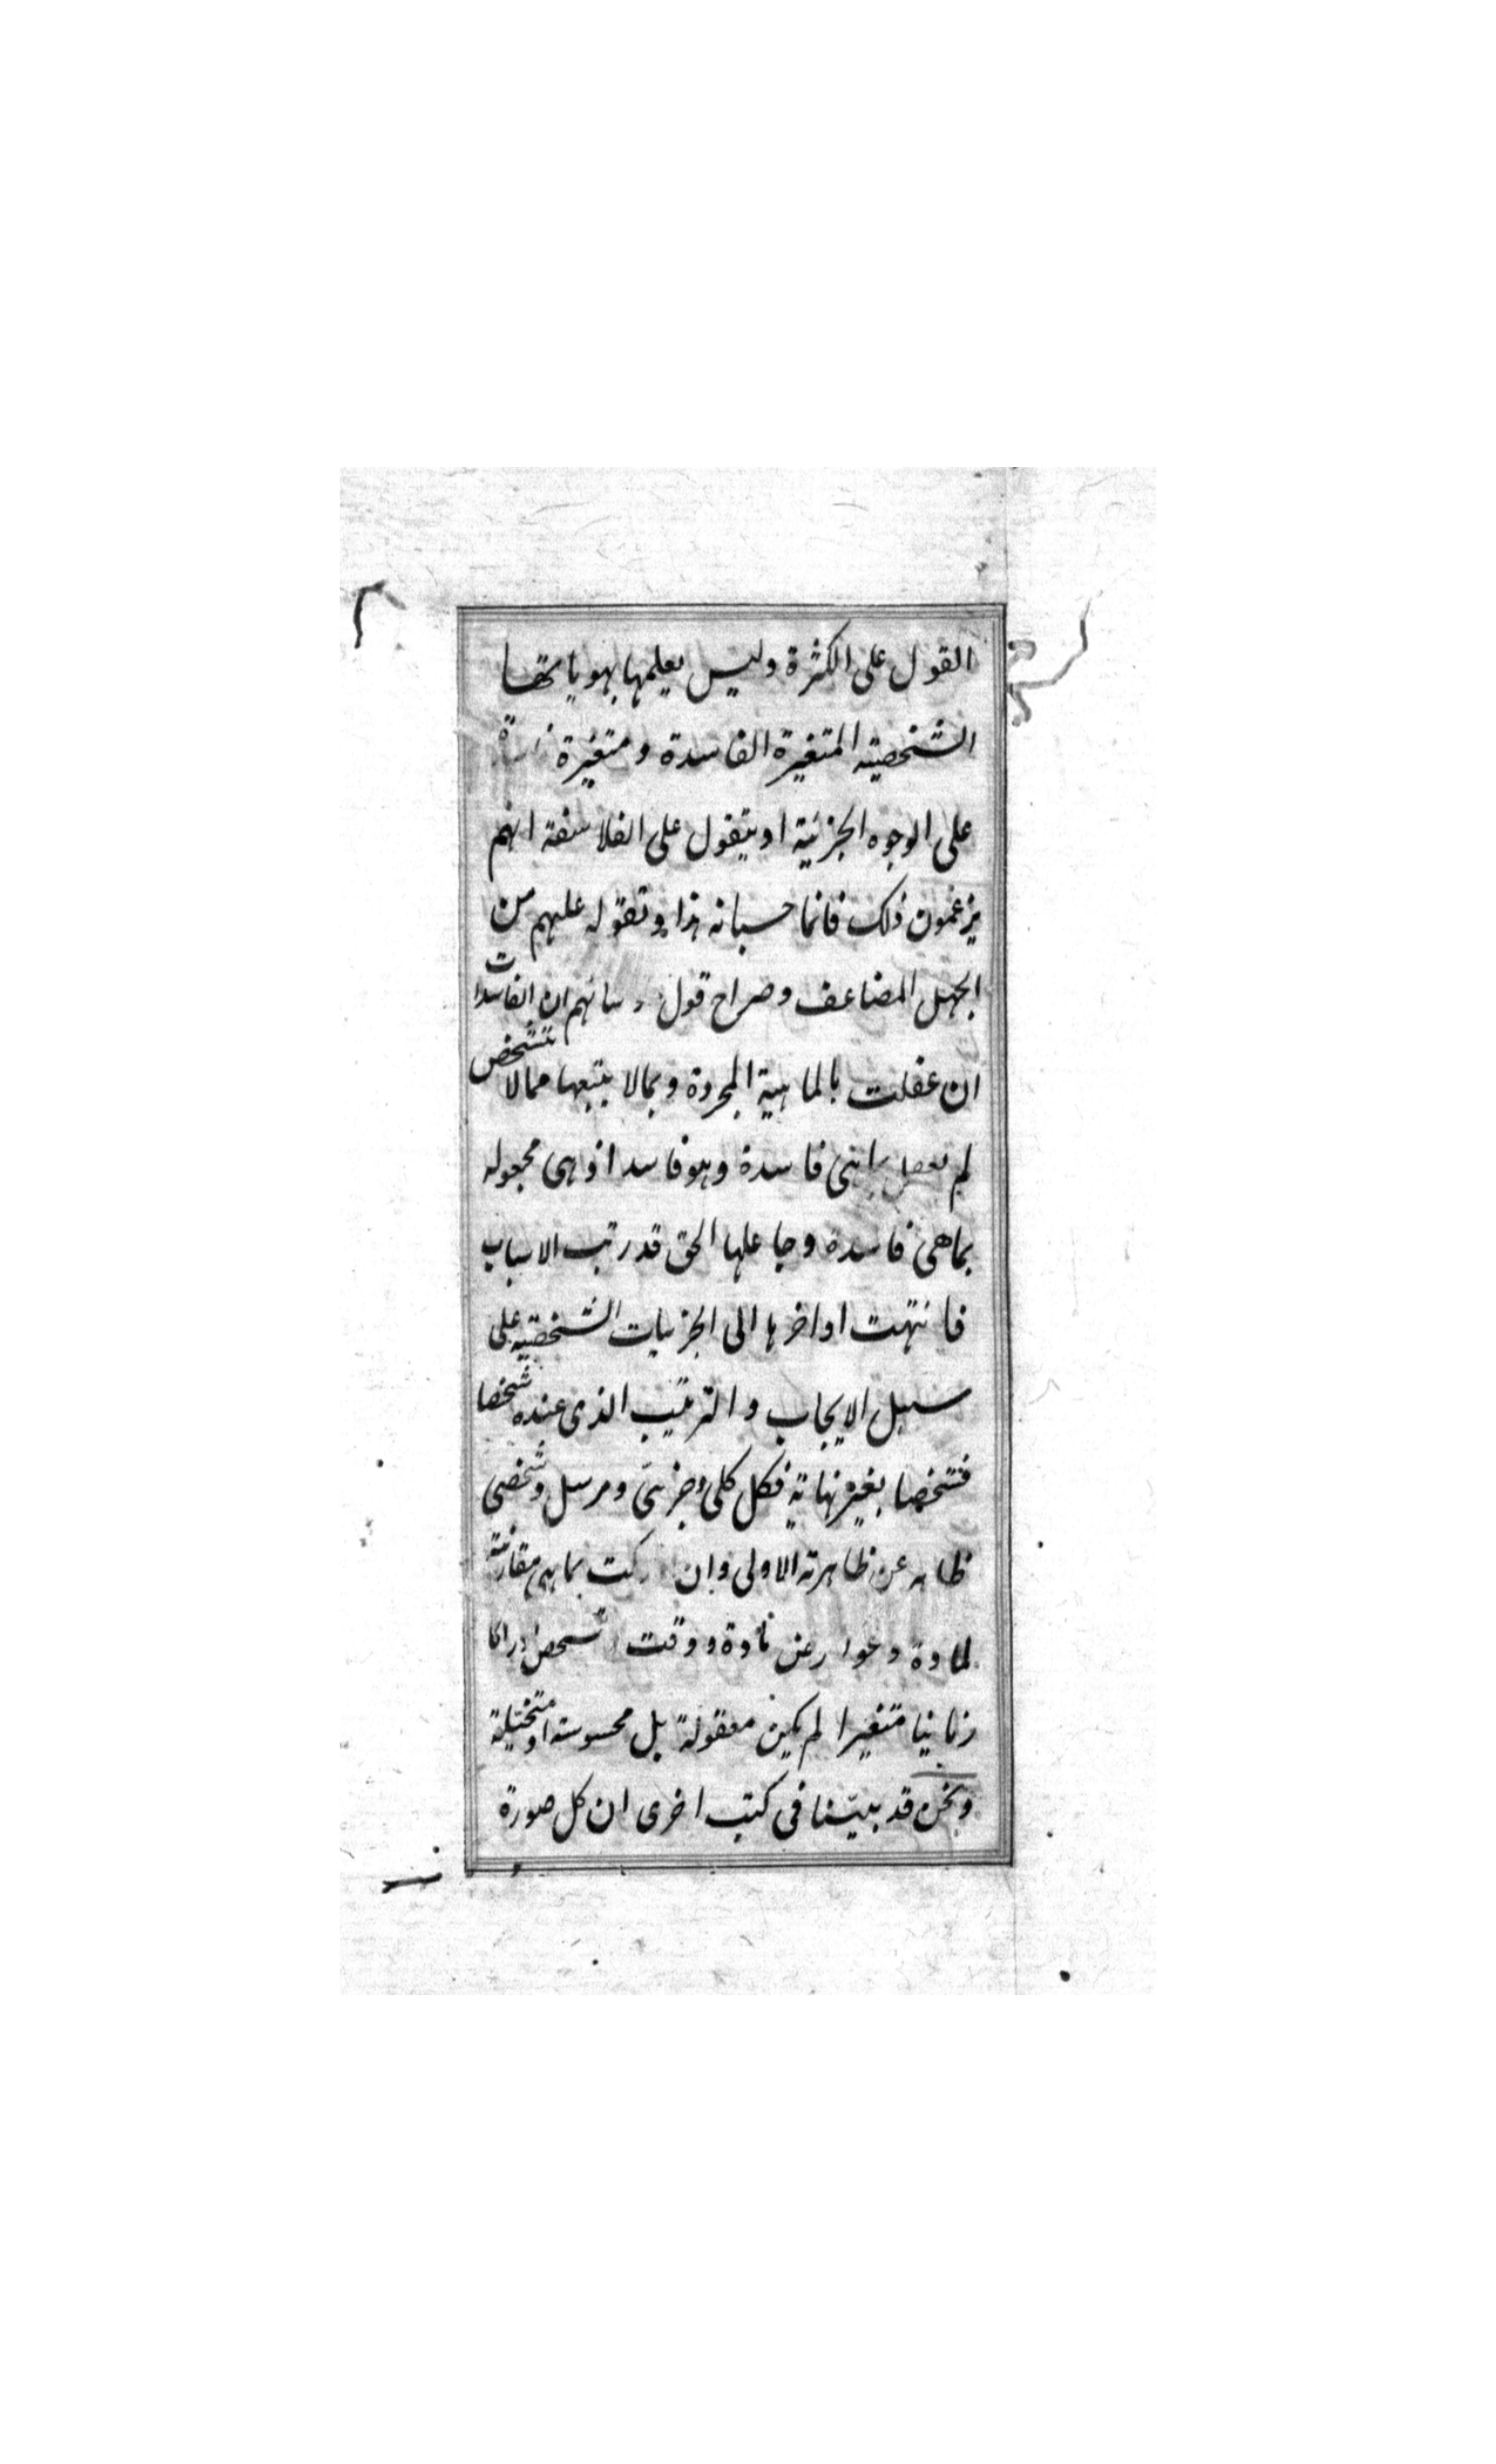 القول على الكثرة وليس يعلمها بهوياتها
الشخصية المتغيرة الفاسدة ومتغيرة
على الوجوه الجزئية او يتقول على الفلاسفة انهم
يزعمون ذلك فانما حسبانه هذا وتقوله عليهم من
الجهل المضاعف وصراح قول انهم ان الفاسدات
ان عقلت بالماهية المجردة وبما لا يتبعها مما لا تتشخص
لم فاسدة وهو فاسد اذ وهى مجعوله
بما هى فاسدة وجاعلها الحق قد رتب الاسباب
فانتهت اواخرها الى الجزئيات الشخصية على
سبيل الايجاب و الترتيب الذى عنده شخصا
فشخصا بغير نهاية فكل كلى وجزئى ومرسل وشخصى
ظاهر عن ظاهريته الاولى وان بما هى مقارنة
لمادة مادة ووقت
زمانيا متغيرا لم يكن معقولة بل محسوسة او متخيلة
ونحن قد بيّنا فى كتب اخرى ان كل صورة